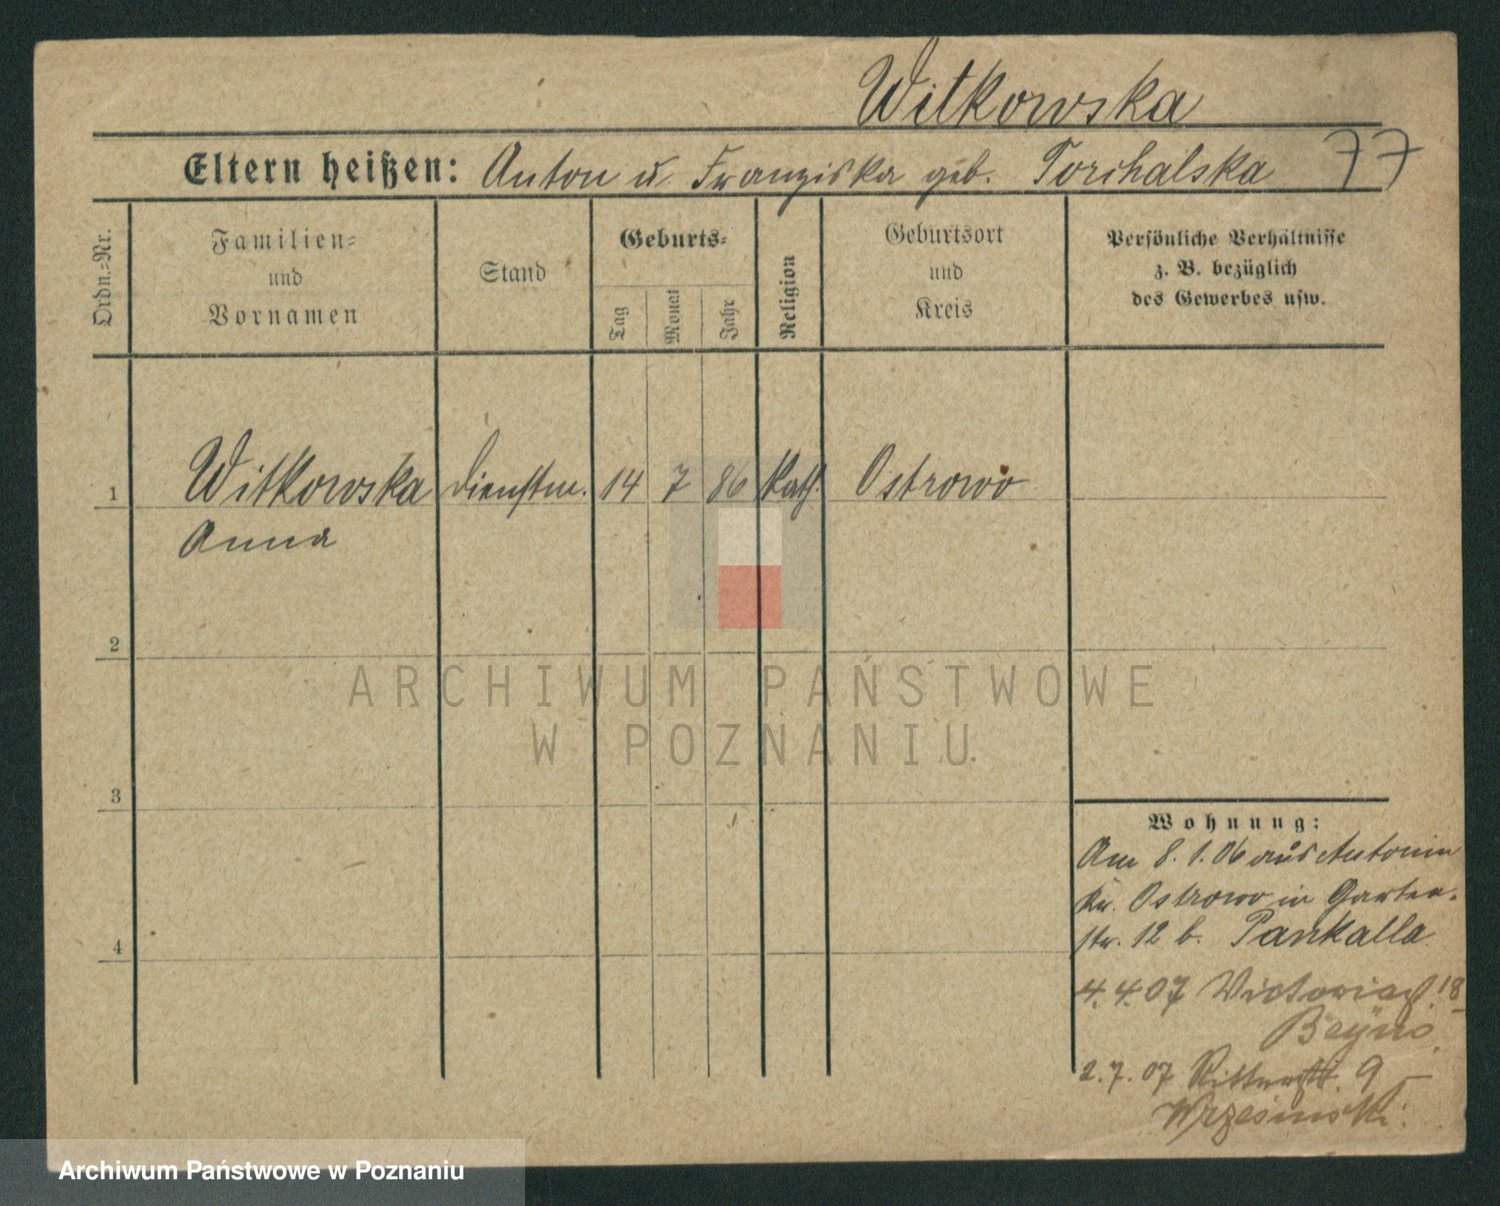 Witkowska
Eltern heißen: Anton u. Franziska geb. Torchalska 77
Ordn.-Nr.
Familien-
und
Vornamen
Stand
Geburts-
Tag
Monat
Jahr
Religion
Geburtsort
und
Kreis
Persönliche Verhältnisse
z. B. bezüglich
des Gewerbes usw.
1 Witkowska Dienstm. 14 7 86 kath. Ostrowo
Anna
2
3
4
Wohnung:
Am 8. 1. 06 aus Antonin
Kr. Ostrowo in Garten-
str. 12 b. Pankalla
4. 4. 07 Victoriast. 18
2. 7. 07 Ritterstr. 9
Wrzesinski.
ARCHIWUM PAŃSTWOWE
W POZNANIU
Archiwum Państwowe w Poznaniu